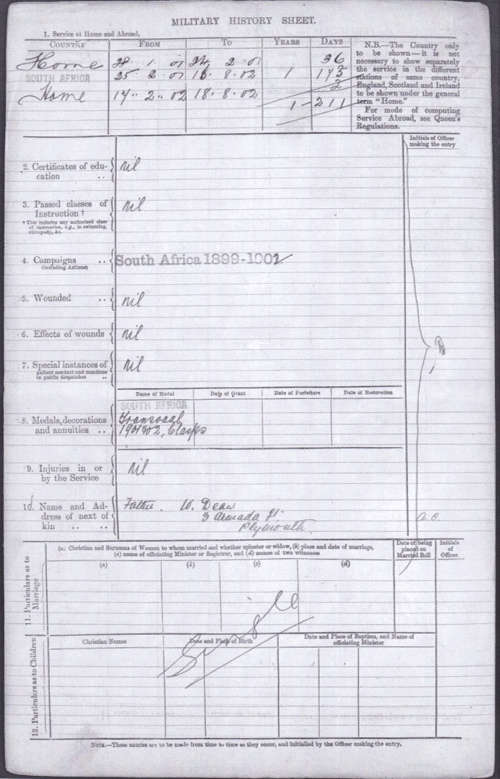 MILITARY HISTORY SHEET.
1. Service at Home and Abroad,
COUNTRY FROM TO YEARS DAYS
Home 28 1 01 24 2 01 36
SOUTH AFRICA 25 2 01 16 8 02 1 173
Home 17 2 02 18 8 02 2
1-211
N.B.—The Country only
to be shown—it is not
necessary to show separately
the service in the different
stations of same country,
England, Scotland and Ireland
to be shown under the general
term "Home."
For mode of computing
Service Abroad, see Queen's
Regulations.
Initials of Officer
making the entry
2. Certificates of edu-
cation .. nil
3. Passed classes of
Instruction † nil
4. Campaigns .. South Africa 1899-1902
(including Actions)
5. Wounded .. nil
6. Effects of wounds nil
7. Special instances of nil
gallant conduct and mentions
in public despatches ..
Name of Medal Date of Grant Date of Forfeiture Date of Restoration
SOUTH AFRICA
8. Medals, decorations Transvaal
and annuities .. 1901 1902, Clasps
9. Injuries in or
by the Service nil
10. Name and Ad-
dress of next of
kin .. ..
Father W. Dean
3 Armada St.
Plymouth
11. Particulars as to
Marriage
(a) Christian and Surname of Woman to whom married and whether spinster or widow, (b) place and date of marriage,
(c) name of officiating Minister or Registrar, and (d) names of two witnesses
Date of being
placed on
Married Roll
Initials
of
Officer
(a) (b) (c) (d)
Single
12. Particulars as to Children
Christian Names Date and Place of Birth Date and Place of Baptism, and Name of
officiating Minister
NOTE.—These entries are to be made from time to time as they occur, and initialled by the Officer making the entry.